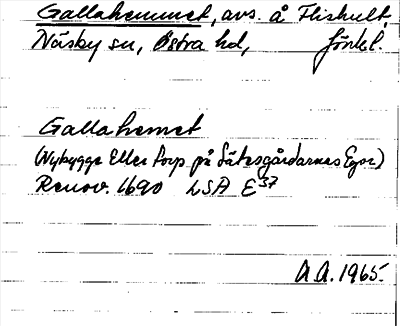 Gallahemmet, avs. å Flishult,
Näsby sn, Östra hd, förkl.
Gallahemet
(Nybygge Eller torp på Sätesgårdarnas Egor)
Renov. 1690 LSA E37
A.A. 1965.